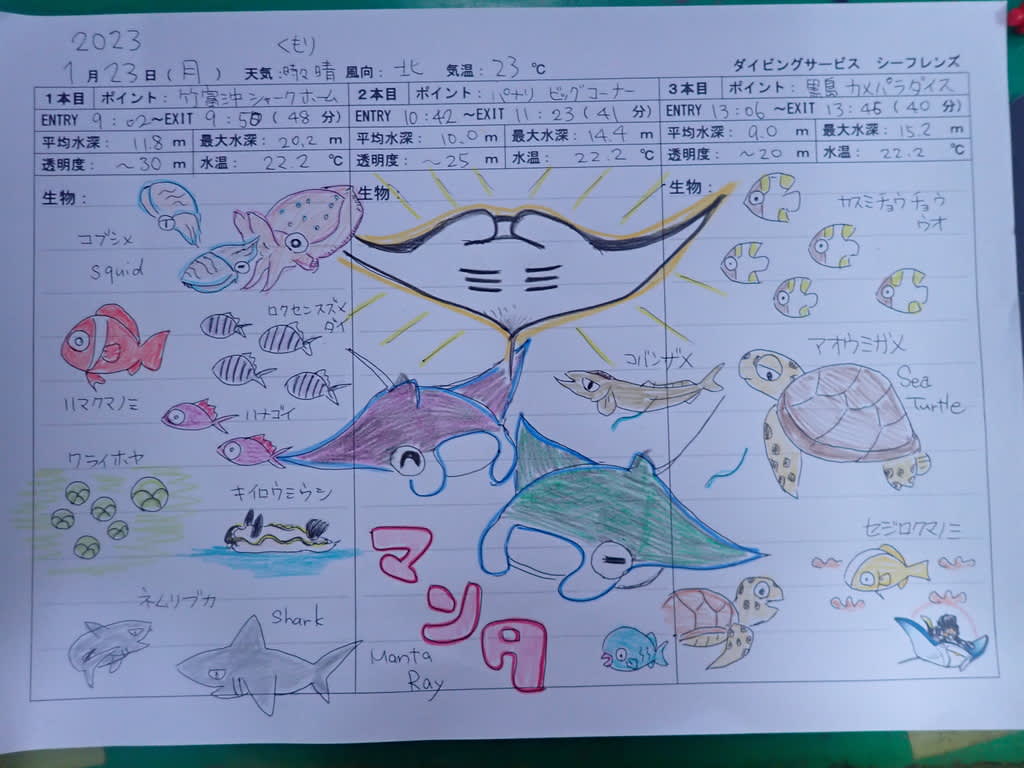 2023
くもり
1月23日(月) 天気:時々晴 風向:北 気温:23℃
ダイビングサービス シーフレンズ
1本目 ポイント:竹富沖シャークホーム
ENTRY 9:02~EXIT 9:50(48分)
平均水深:11.8m 最大水深:20.2m
透明度:~30m 水温:22.2℃
生物:
コブシメ
squid
ロクセンスズメ
ダイ
ハマクマノミ
ハナゴイ
ワライホヤ
キイロウミウシ
ネムリブカ
Shark
2本目 ポイント:パナリ ビッグコーナー
ENTRY 10:42~EXIT 11:23(41分)
平均水深:10.0m 最大水深:14.4m
透明度:~25m 水温:22.2℃
生物:
コバンザメ
マンタ
Manta
Ray
3本目 ポイント:黒島 カメパラダイス
ENTRY 13:06~EXIT 13:46(40分)
平均水深:9.0m 最大水深:15.2m
透明度:~20m 水温:22.2℃
生物:
カスミチョウチョウ
ウオ
アオウミガメ
Sea
Turtle
セジロクマノミ